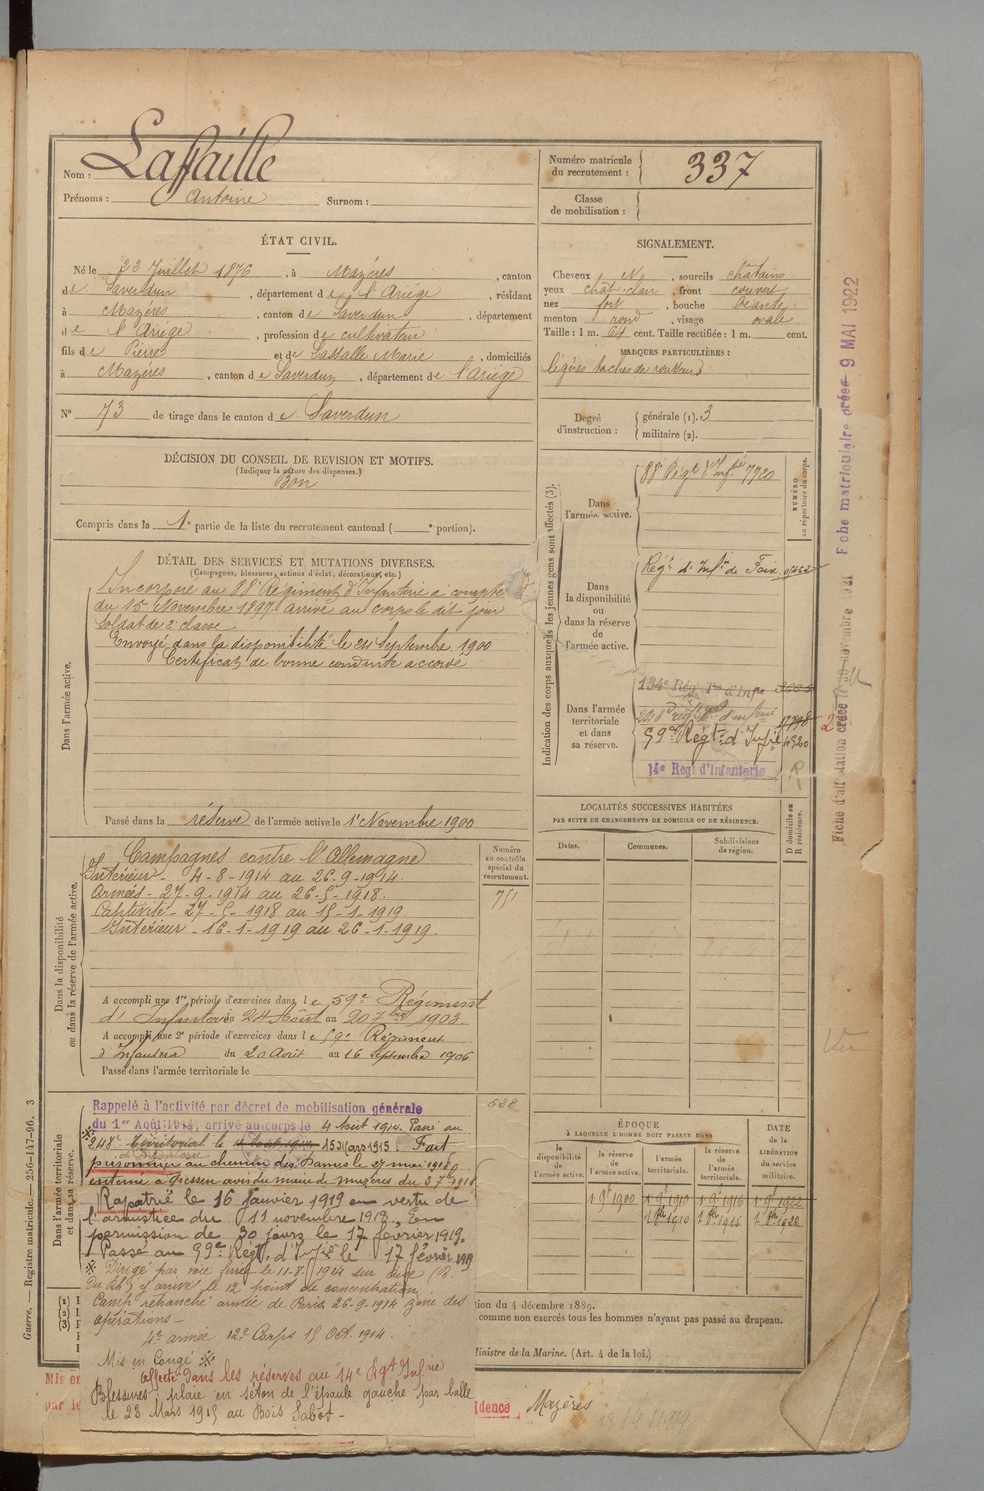 Nom : Laffaille
Prénoms : Antoine Surnom :
Numéro matricule du recrutement : 337
Classe de mobilisation :
ÉTAT CIVIL.
Né le 23 Juillet 1876, à Mazères, canton
de Saverdun, département de l'Ariège, résidant
à Mazères, canton de Saverdun, département
de l'Ariège, profession de cultivateur
fils de Pierre et de Lassalle Marie, domiciliés
à Mazères, canton de Saverdun, département de l'Ariège
N° 73 de tirage dans le canton de Saverdun
SIGNALEMENT.
Cheveux N, sourcils châtains
yeux chat. clair, front couvert
nez fort, bouche béante
menton rond, visage ovale
Taille : 1 m. 64 cent. Taille rectifiée : 1 m. cent.
MARQUES PARTICULIÈRES :
légères taches de rousseurs
Degré d'instruction : générale (1). 3
militaire (2).
DÉCISION DU CONSEIL DE REVISION ET MOTIFS.
(Indiquer la nature des dispenses.)
Bon
Compris dans la 1e partie de la liste du recrutement cantonal ( e portion).
DÉTAIL DES SERVICES ET MUTATIONS DIVERSES.
(Campagnes, blessures, actions d'éclat, décorations, etc.)
Dans l'armée active.
Incorporé au 88e Régiment d'Infanterie a compter
du 15 Novembre 1897. arrivé au corps le dit jour
soldat de 2e classe.
Envoyé dans la disponibilité le 24 Septembre 1900
Certificat de bonne conduite accordé
Passé dans la réserve de l'armée active le 1er Novembre 1900
Indication des corps auxquels les jeunes gens sont affectés (3).
NUMÉRO au répertoire du corps.
Dans l'armée active.
88e Régt d'Infie 7720
Dans la disponibilité ou dans la réserve de l'armée active.
Régt d'Infie de Foix
Dans l'armée territoriale et dans sa réserve.
134e Rég. T. d'Infie
59e Régt d'Infie 4520
14e Régt d'Infanterie
Dans la disponibilité ou dans la réserve de l'armée active.
Campagnes contre l'Allemagne
Intérieur - 4-8-1914 au 26-9-1914
Armées - 27-9-1914 au 26-5-1918.
Captivité - 27-5-1918 au 15-1-1919.
Intérieur - 16-1-1919 au 26-1-1919.
Numéro au contrôle spécial du recrutement.
751
A accompli une 1re période d'exercices dans le 59e Régiment
d'Infanterie du 24 Août au 20 7bre 1903.
A accompli une 2e période d'exercices dans le 59e Régiment
d'Infanterie du 20 Août au 16 Septembre 1906
Passé dans l'armée territoriale le
LOCALITÉS SUCCESSIVES HABITÉES
PAR SUITE DE CHANGEMENTS DE DOMICILE OU DE RÉSIDENCE.
Dates. Communes. Subdivisions de région.
D domicile ou R résidence.
Dans l'armée territoriale et dans sa réserve.
Rappelé à l'activité par décret de mobilisation générale
du 1er Août 1914, arrivé au corps le 4 août 1914. Passé au
248e Territorial le 15 Mars 1915. Fait
prisonnier au chemin des Dames le 27 mai 1918
interné à Giessen avis du maire de Mazères du
Rapatrié le 16 Janvier 1919 en vertu de
l'armistice du 11 novembre 1918. En
permission de 30 jours le 17 février 1919.
Passé au 59e Régt d'Infie le 17 février 1919
Dirigé par voie ferrée le 11-8-1914 sur
y arrivé le 12 point de concentration
Camp retranché armée de Paris 26-9-1914 zone des
opérations -
4e armée 12e Corps 15 Oct. 1914.
Mis en Congé
affecté dans les réserves au 14e Rgt Infie
Blessures : plaie en séton de l'épaule gauche par balle
le 23 Mars 1915 au Bois Sabot -
ÉPOQUE
À LAQUELLE L'HOMME DOIT PASSER DANS
la disponibilité de l'armée active. la réserve de l'armée active. l'armée territoriale. la réserve de l'armée territoriale.
DATE de la LIBÉRATION du service militaire.
1 9e 1900 1 9e 1910 1 9e 1916 1 9e 1922
tion du 4 décembre 1889.
comme non exercés tous les hommes n'ayant pas passé au drapeau.
Ministre de la Marine. (Art. 4 de la loi.)
(1)
(2)
(3)
Mis en
par le
idence Mazères
Guerre. — Registre matricule. — 256-147-96. 3
Fiche matriculaire créée 9 MAI 1922